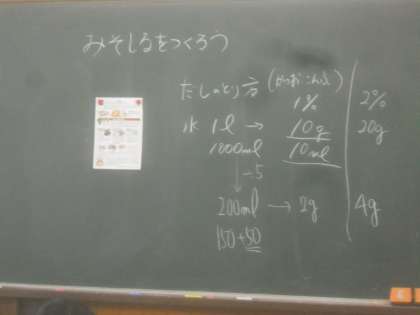 みそしるをつくろう
だしのとり方 (かつおこんぶ)
1% 2%
水 1l → 10g 20g
1000ml 10ml
÷5
200ml → 2g 4g
150+50